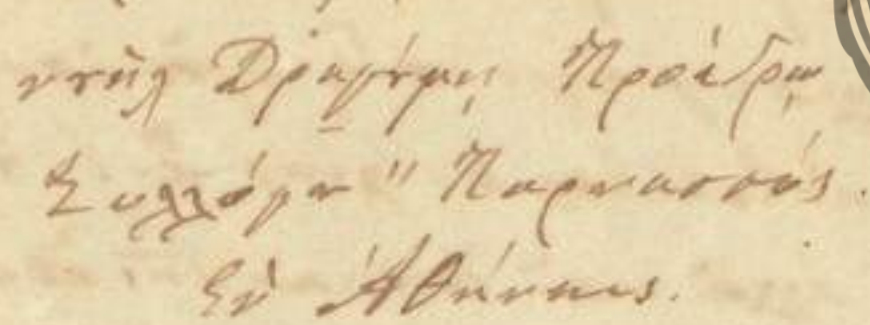 Δραγούμῃ Προέδρῳ
Συλλόγου "Παρνασσός.
Ἐν Ἀθήναις.